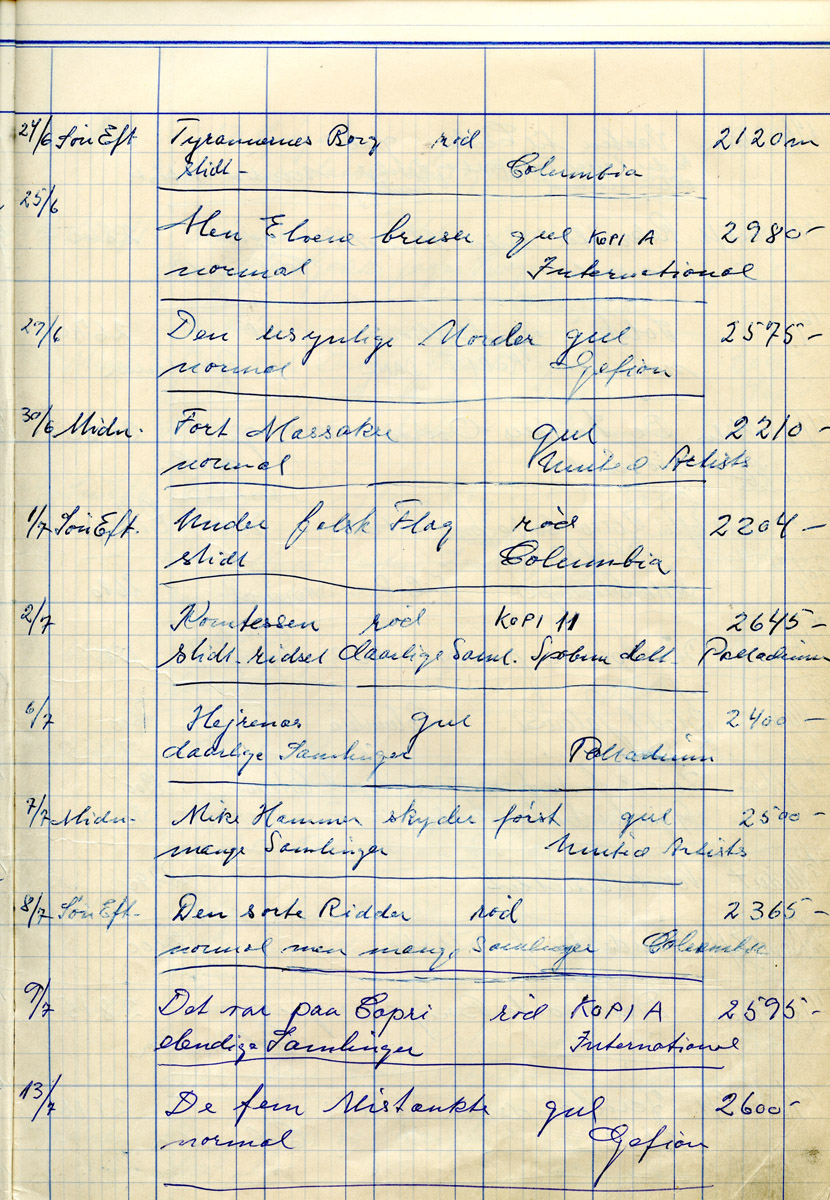 24/6 Søn Eft Tyrannernes Borg rød 2120 m
slidt - Columbia
25/6
Men Elvene bruser gul KOPI A 2980 -
normal International
27/6 Den usynlige Morder gul 2575 -
normal Gefion
30/6 Midn. Fort Massakre gul 2210 -
normal United Artists
1/7 Søn Eft. Under falsk Flag rød 2204 -
slidt Columbia
2/7 Komtessen rød KOPI 11 2645 -
slidt - ridset daarlige Saml. Palladium
6/7 Hejrenæs gul 2400 -
daarlige Samlinger Palladium
7/7 Midn - Mike Hammer skyder først gul 2500 -
mange Samlinger United Artists
8/7 Søn Eft - Den sorte Ridder rød 2365 -
normal men mange Samlinger Columbia
9/7 Det var paa Capri rød KOPI A 2595 -
elendige Samlinger International
13/7 De fem Mistænkte gul 2600 -
normal Gefion